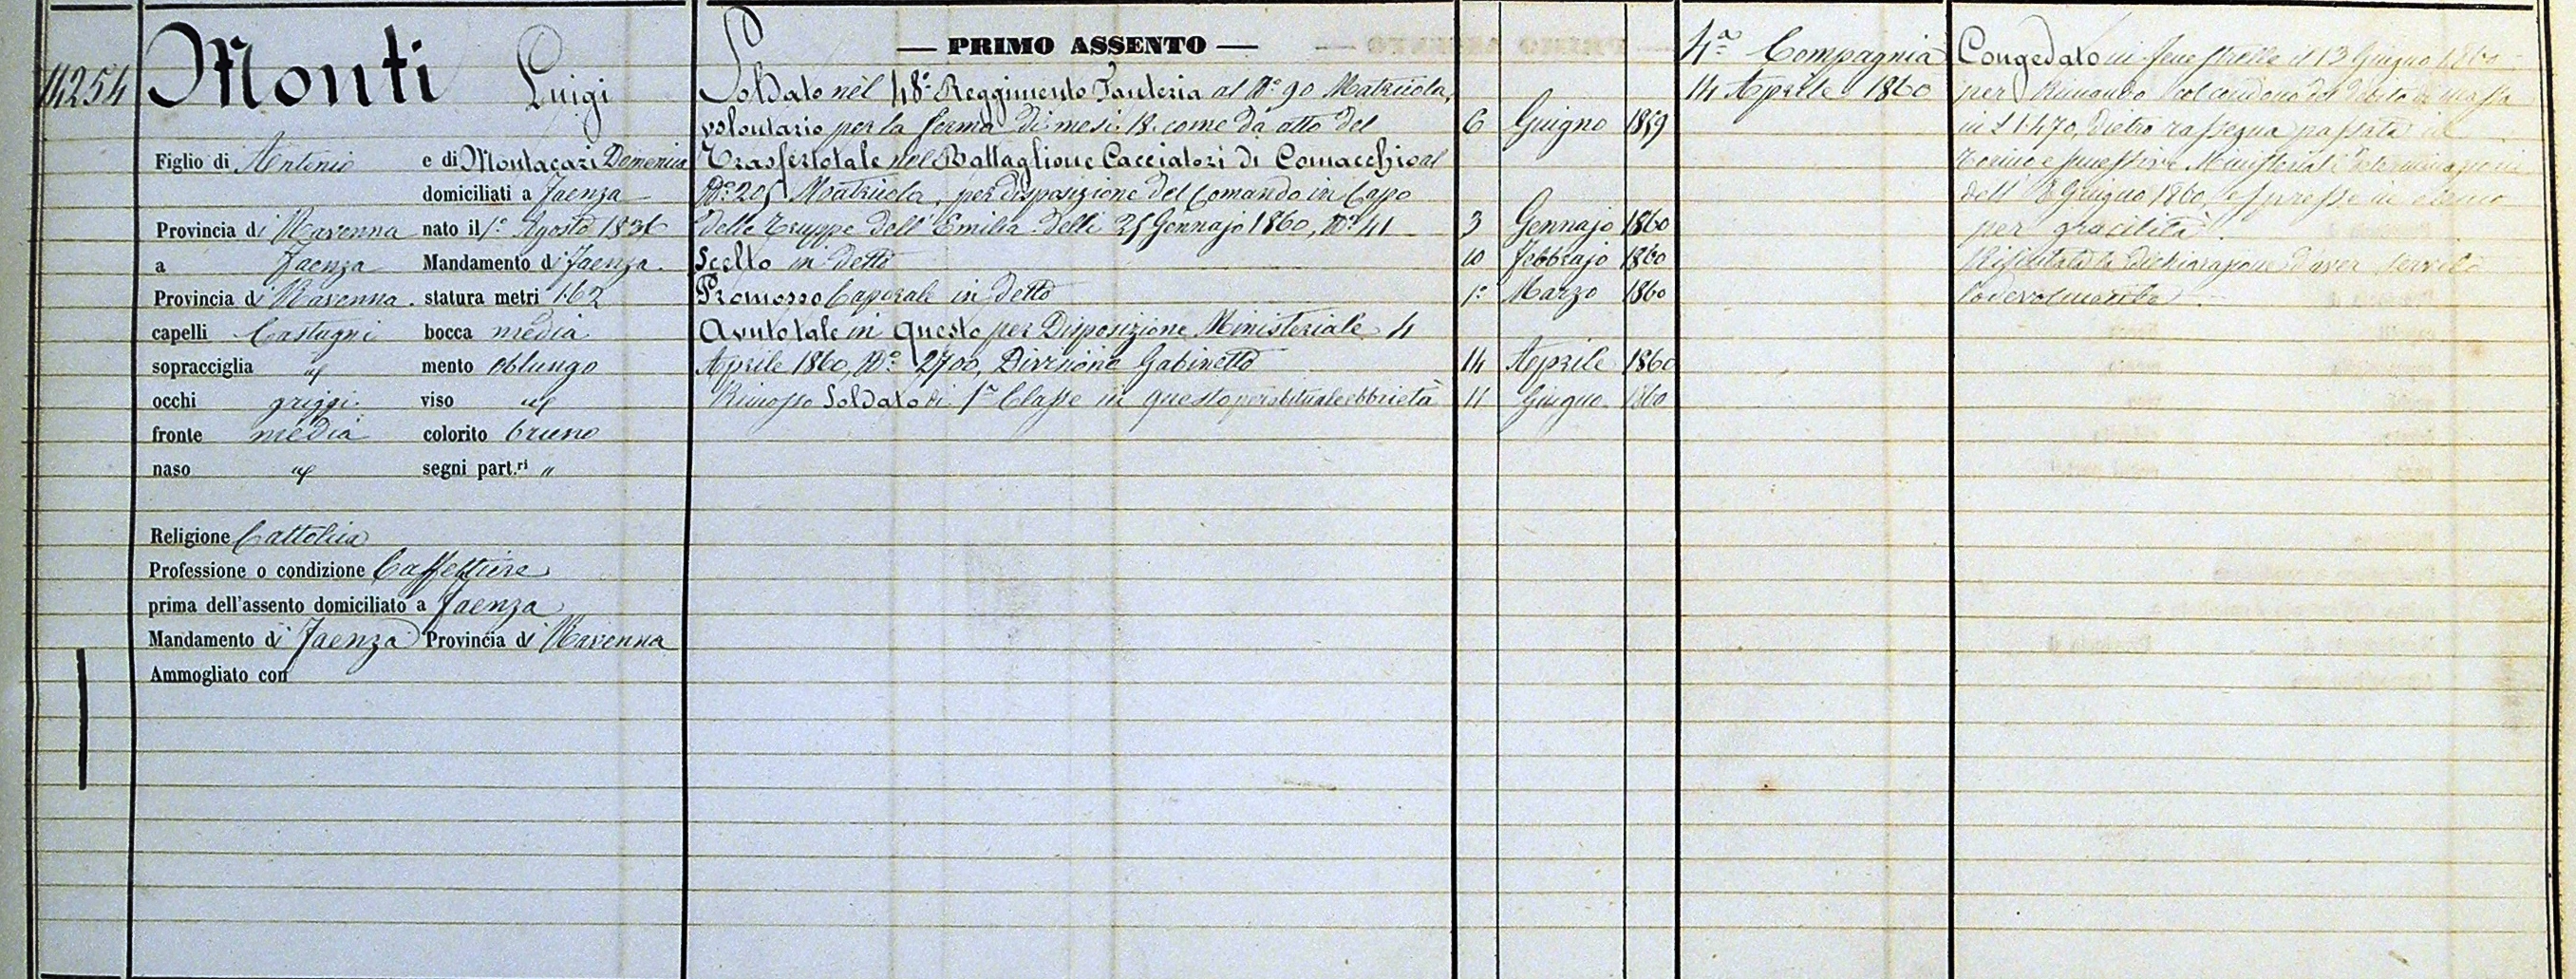 14254
Monti Luigi
Figlio di Antonio e di Montacari Domenica
domiciliati a Faenza
Provincia di Ravenna nato il 1° Agosto 1836
a Faenza Mandamento di Faenza
Provincia di Ravenna. statura metri 1.62
capelli Castagni bocca media
sopracciglia id mento oblungo
occhi griggi viso id
fronte media colorito bruno
naso id segni part.ri "
Religione Cattolica
Professione o condizione Caffettiere
prima dell'assento domiciliato a Faenza
Mandamento di Faenza Provincia di Ravenna
Ammogliato con
— PRIMO ASSENTO —
Soldato nel 48° Reggimento Fanteria al N° 90 Matricola,
volontario per la ferma di mesi 18. come da atto del 6 Giugno 1859
Trasfertotale nel Battaglione Cacciatori di Comacchio al
N° 205 Matricola, per disposizione del Comando in Capo
delle Truppe dell'Emilia delli 25 Gennajo 1860, N° 41 3 Gennajo 1860
Scelto in detto 10 Febbrajo 1860
Promosso Caporale in detto 1° Marzo 1860
Avuto tale in questo per Disposizione Ministeriale 4
Aprile 1860, N° 2700, Divisione Gabinetto 14 Aprile 1860
Rimosso Soldato di 1a Classe in questo per abituale ebbrietà 11 Giugno 1860
4a Compagnia
14 Aprile 1860
Congedato in Fenestrelle il 13 Giugno 1860
per Rimando col condono del debito di massa
in £ 14.70, dietro rassegna passata in
Torino e successiva Ministerial determinazione
dell' 8 Giugno 1860, espresse in elenco
per gracilità.
Rifiutata la dichiarazione d'aver servito
lodevolmente.